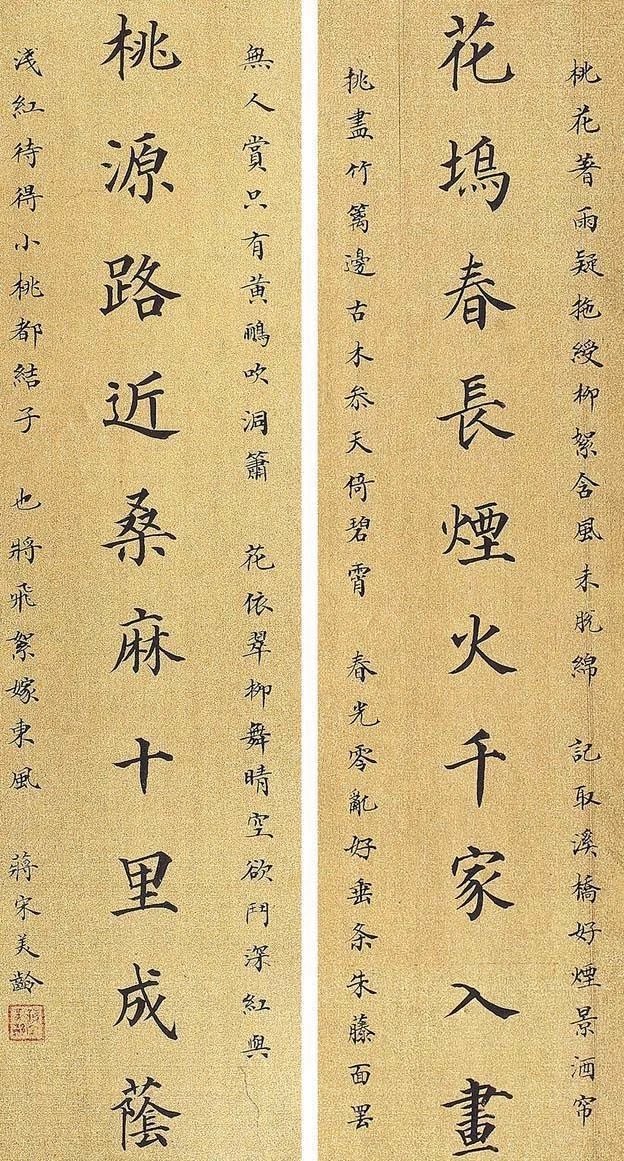 桃花著雨疑拖綬柳絮含風未脫綿 記取溪橋好煙景酒帘
花塢春長煙火千家入畫
挑盡竹籬邊古木叅天倚碧霄 春光零亂好垂条朱藤面罢
無人賞只有黃鸝吹洞簫 花依翠柳舞晴空欲鬥深紅與
桃源路近桑麻十里成蔭
淺紅待得小桃都結子 也將飛絮嫁東風 蔣宋美齡